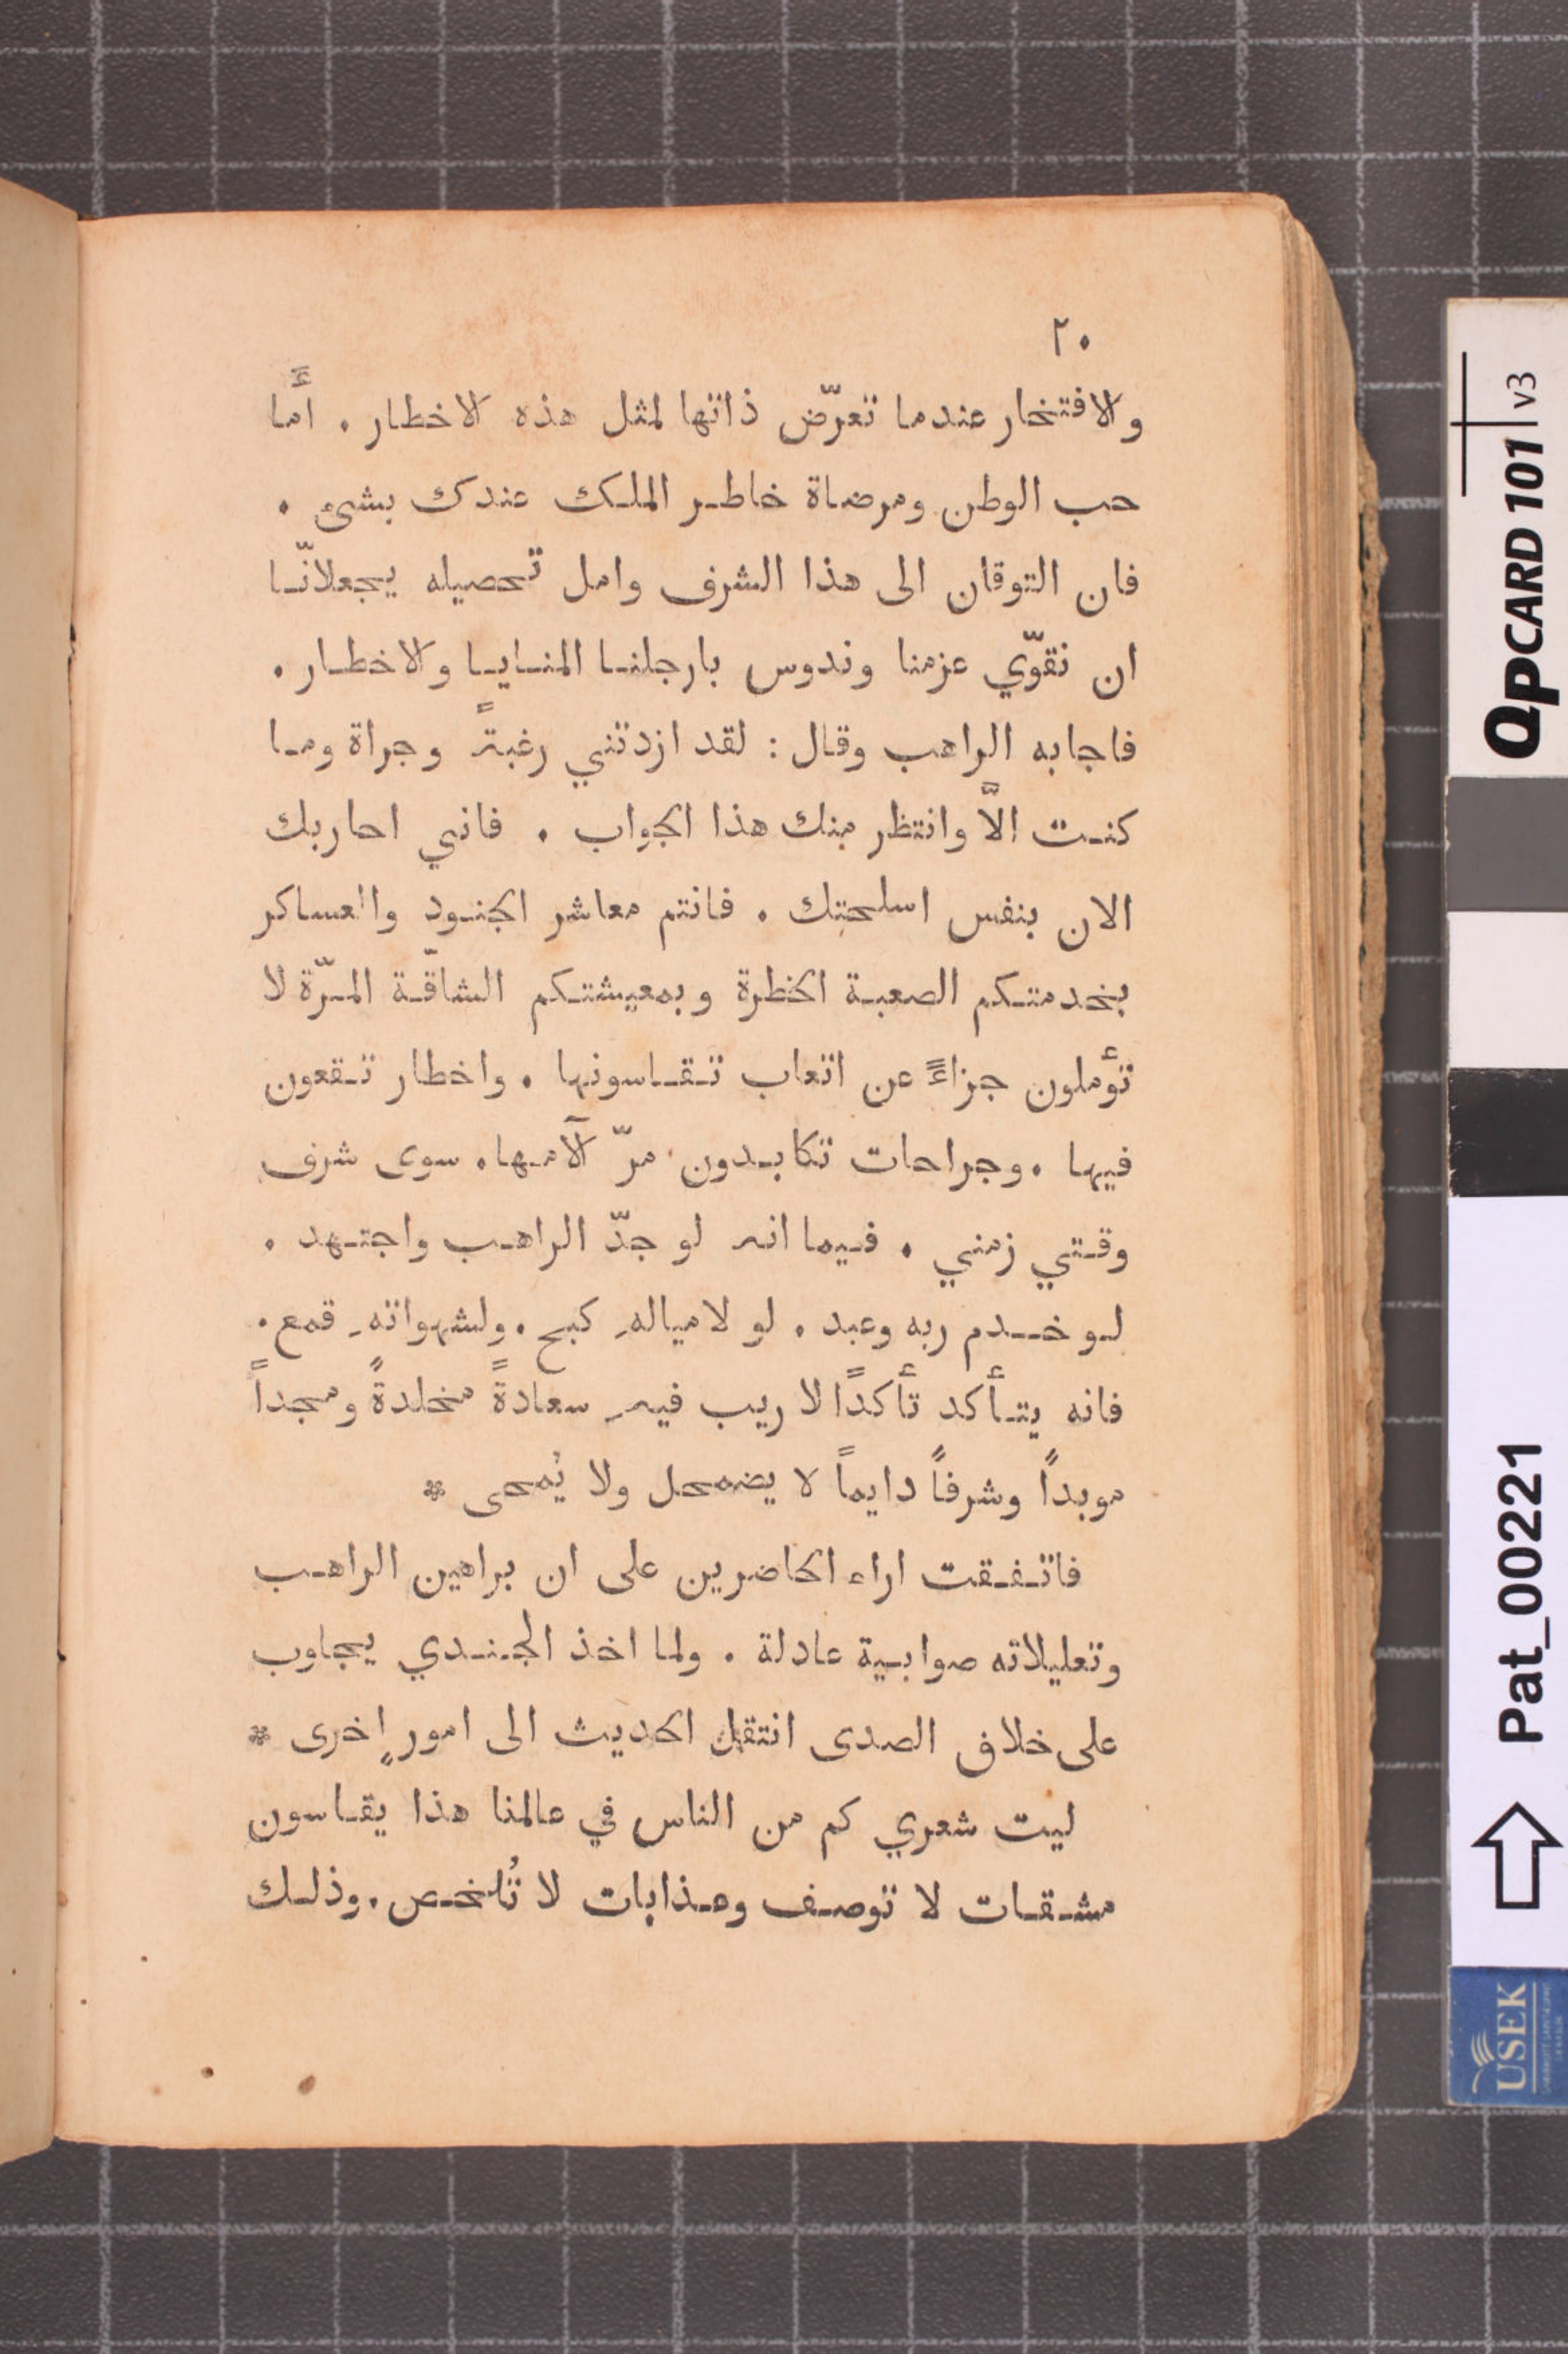 ٢٠
والافتخار عندما تعرّض ذاتها لمثل هذه الاخطار . أَما
حب الوطن ومرضاة خاطر الملك عندك بشيءٍ .
فان التوقان الى هذا الشرف وامل تحصيله يجعلانّا
ان نقوّي عزمنا وندوس بارجلنا المنايا والاخطار .
فاجابه الراهب وقال : لقد ازدتني رغبةً وجراة وما
كنت الاّ وانتظر منك هذا الجواب . فاني احاربك
الان بنفس اسلحتك . فانتم معاشر الجنود والعساكر
بخدمتكم الصعبة الخطرة وبمعيشتكم الشاقّة المرّة لا
تؤملون جزاءً عن اتعاب تقاسونها . واخطار تقعون
فيها . وجراحات تكابدون مرّ آلامها . سوى شرف
وقتي زمني . فيما انه لو جدّ الراهب واجتهد .
لو خدم ربه وعبد . لو لاميالهِ كبح . ولشهواتهِ قمع .
فانه يتأكد تأكدًا لا ريب فيهِ سعادةً مخلدةً ومجداً
موبداً وشرفاً دايماً لا يضمحل ولا يُمحى *
فاتفقت اراء الحاضرين على ان براهين الراهب
وتعليلاته صوابية عادلة . ولما اخذ الجندي يجاوب
على خلاف الصدى انتقل الحديث الى امورٍ اخرى *
ليت شعري كم من الناس في عالمنا هذا يقاسون
مشقات لا توصف وعذابات لا تُلخص . وذلك
QPCARD 101 v3
Pat_00221
USEK